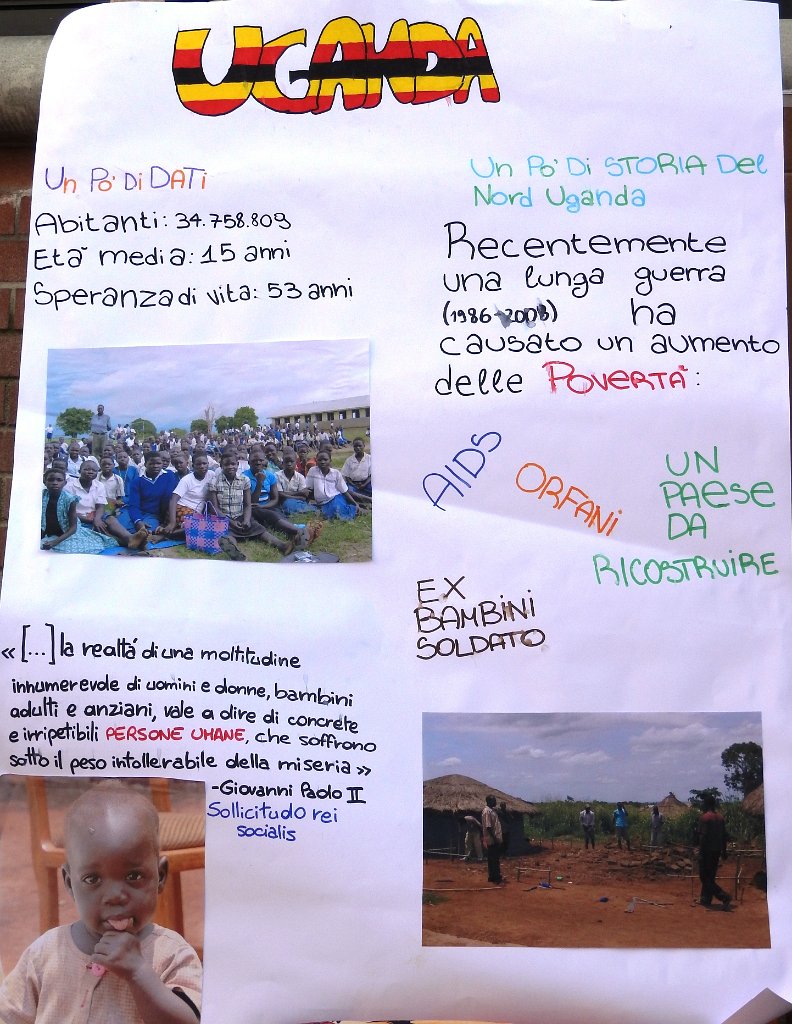 UGANDA
Un Po' Di DATi
Abitanti: 34.758.809
Età media: 15 anni
Speranza di vita: 53 anni
« [...] la realtà di una moltitudine
innumerevole di uomini e donne, bambini
adulti e anziani, vale a dire di concrete
e irripetibili PERSONE UMANE, che soffrono
sotto il peso intollerabile della miseria »
-Giovanni Paolo II
Sollicitudo rei
socialis
Un Po' Di STORIA Del
Nord Uganda
Recentemente
una lunga guerra
(1986-2008) ha
causato un aumento
delle POVERTÀ:
AIDS
ORFANI
UN
PAESE
DA
RICOSTRUIRE
EX
BAMBINI
SOLDATO